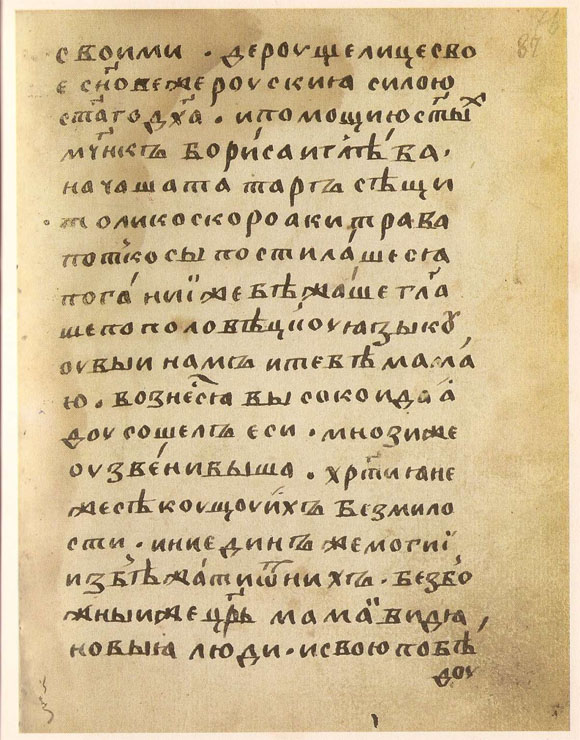 своими · дероущелицесво
е сн҃овежероускиꙗ силою
ст҃агодх҃а · ипомощиюст҃ыⷯ
мч҃нкъ бори́саиглѣ́ба·
начашататаръ сѣщи
толикоскороакитрава
пот҃косы постила́шесꙗ
пога́ниї жебѣжащегл҃а
щепополовѣцкоуꙗзыкꙋ
оувыи намъ итебѣмама́
ю · вознес҃ꙗ высокоидо а́
доусошелъ еси · мнозиже
оузве́нибыша · хрⷭ҇тиꙗне
жесѣкоущоуи́хъ безмило
сти · иниединъ жемогиї
избѣжатиѿнихъ · безбо́
жныижецр҃ь мамаⷤ видꙗ
новыꙗ люди · исвоюпобѣ
доу
87